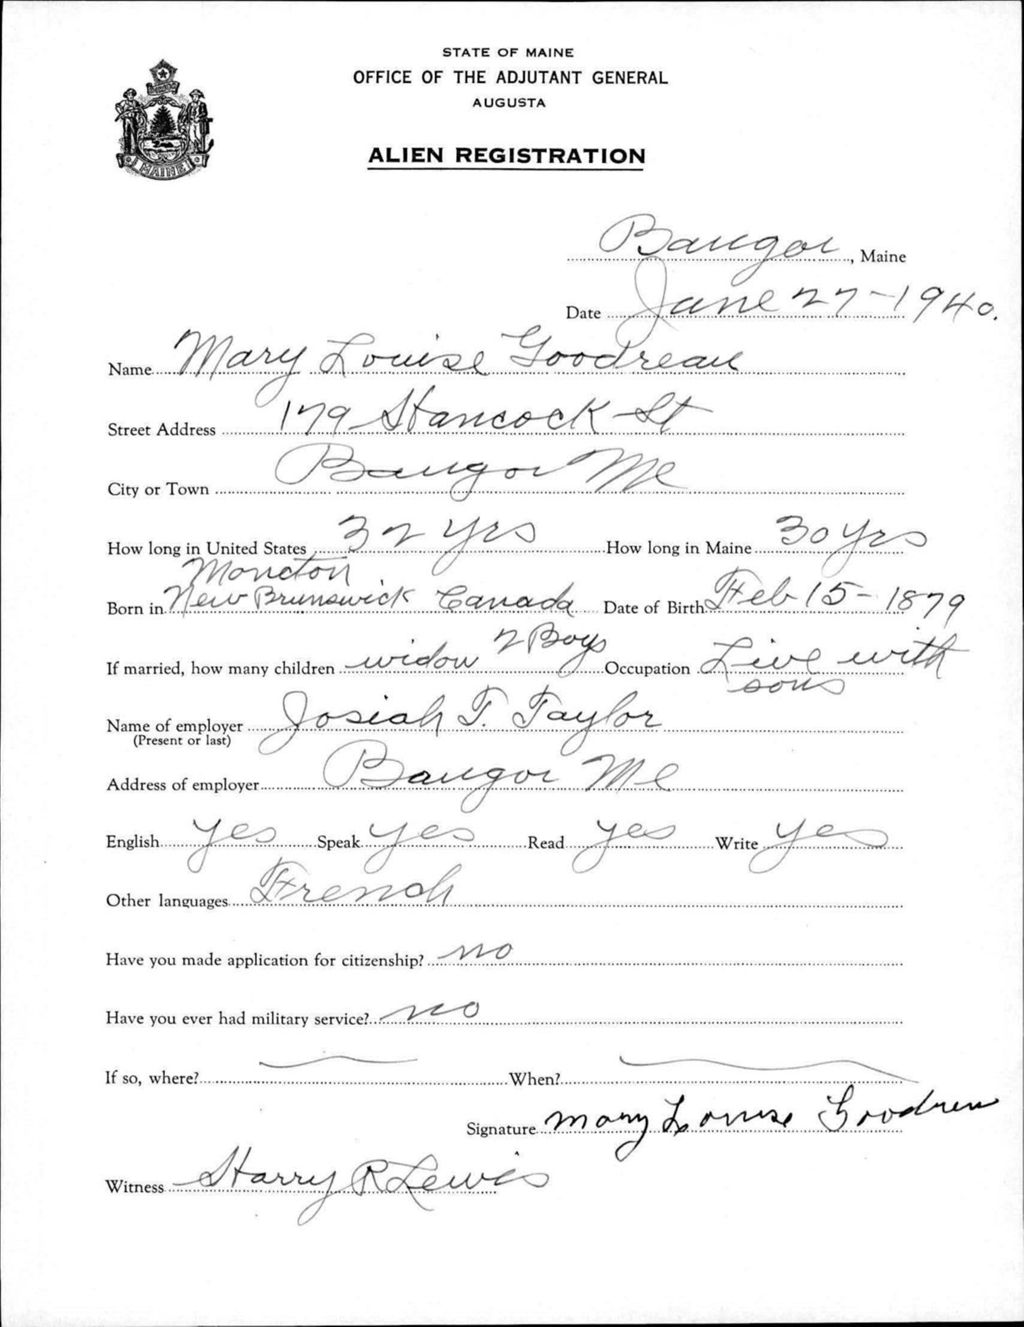 STATE OF MAINE
OFFICE OF THE ADJUTANT GENERAL
AUGUSTA
ALIEN REGISTRATION
MAINE
Bangor, Maine
Date June 27-1940.
Name Mary Louise Goodreau
Street Address 179 Hancock St
City or Town Bangor Me
How long in United States 32 yrs How long in Maine 30 yrs
Moncton
Born in New Brunswick Canada Date of Birth Feb 15-1879
If married, how many children widow 2 Boys Occupation Live with
sons
Name of employer Josiah T. Taylor
(Present or last)
Address of employer Bangor Me
English yes Speak yes Read yes Write yes
Other languages French
Have you made application for citizenship? no
Have you ever had military service? no
If so, where? When?
Signature Mary Louise Goodreu
Witness Harry R Lewis